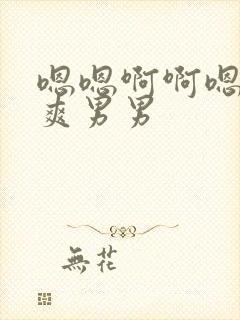 嗯嗯啊啊嗯
爽男男
無花